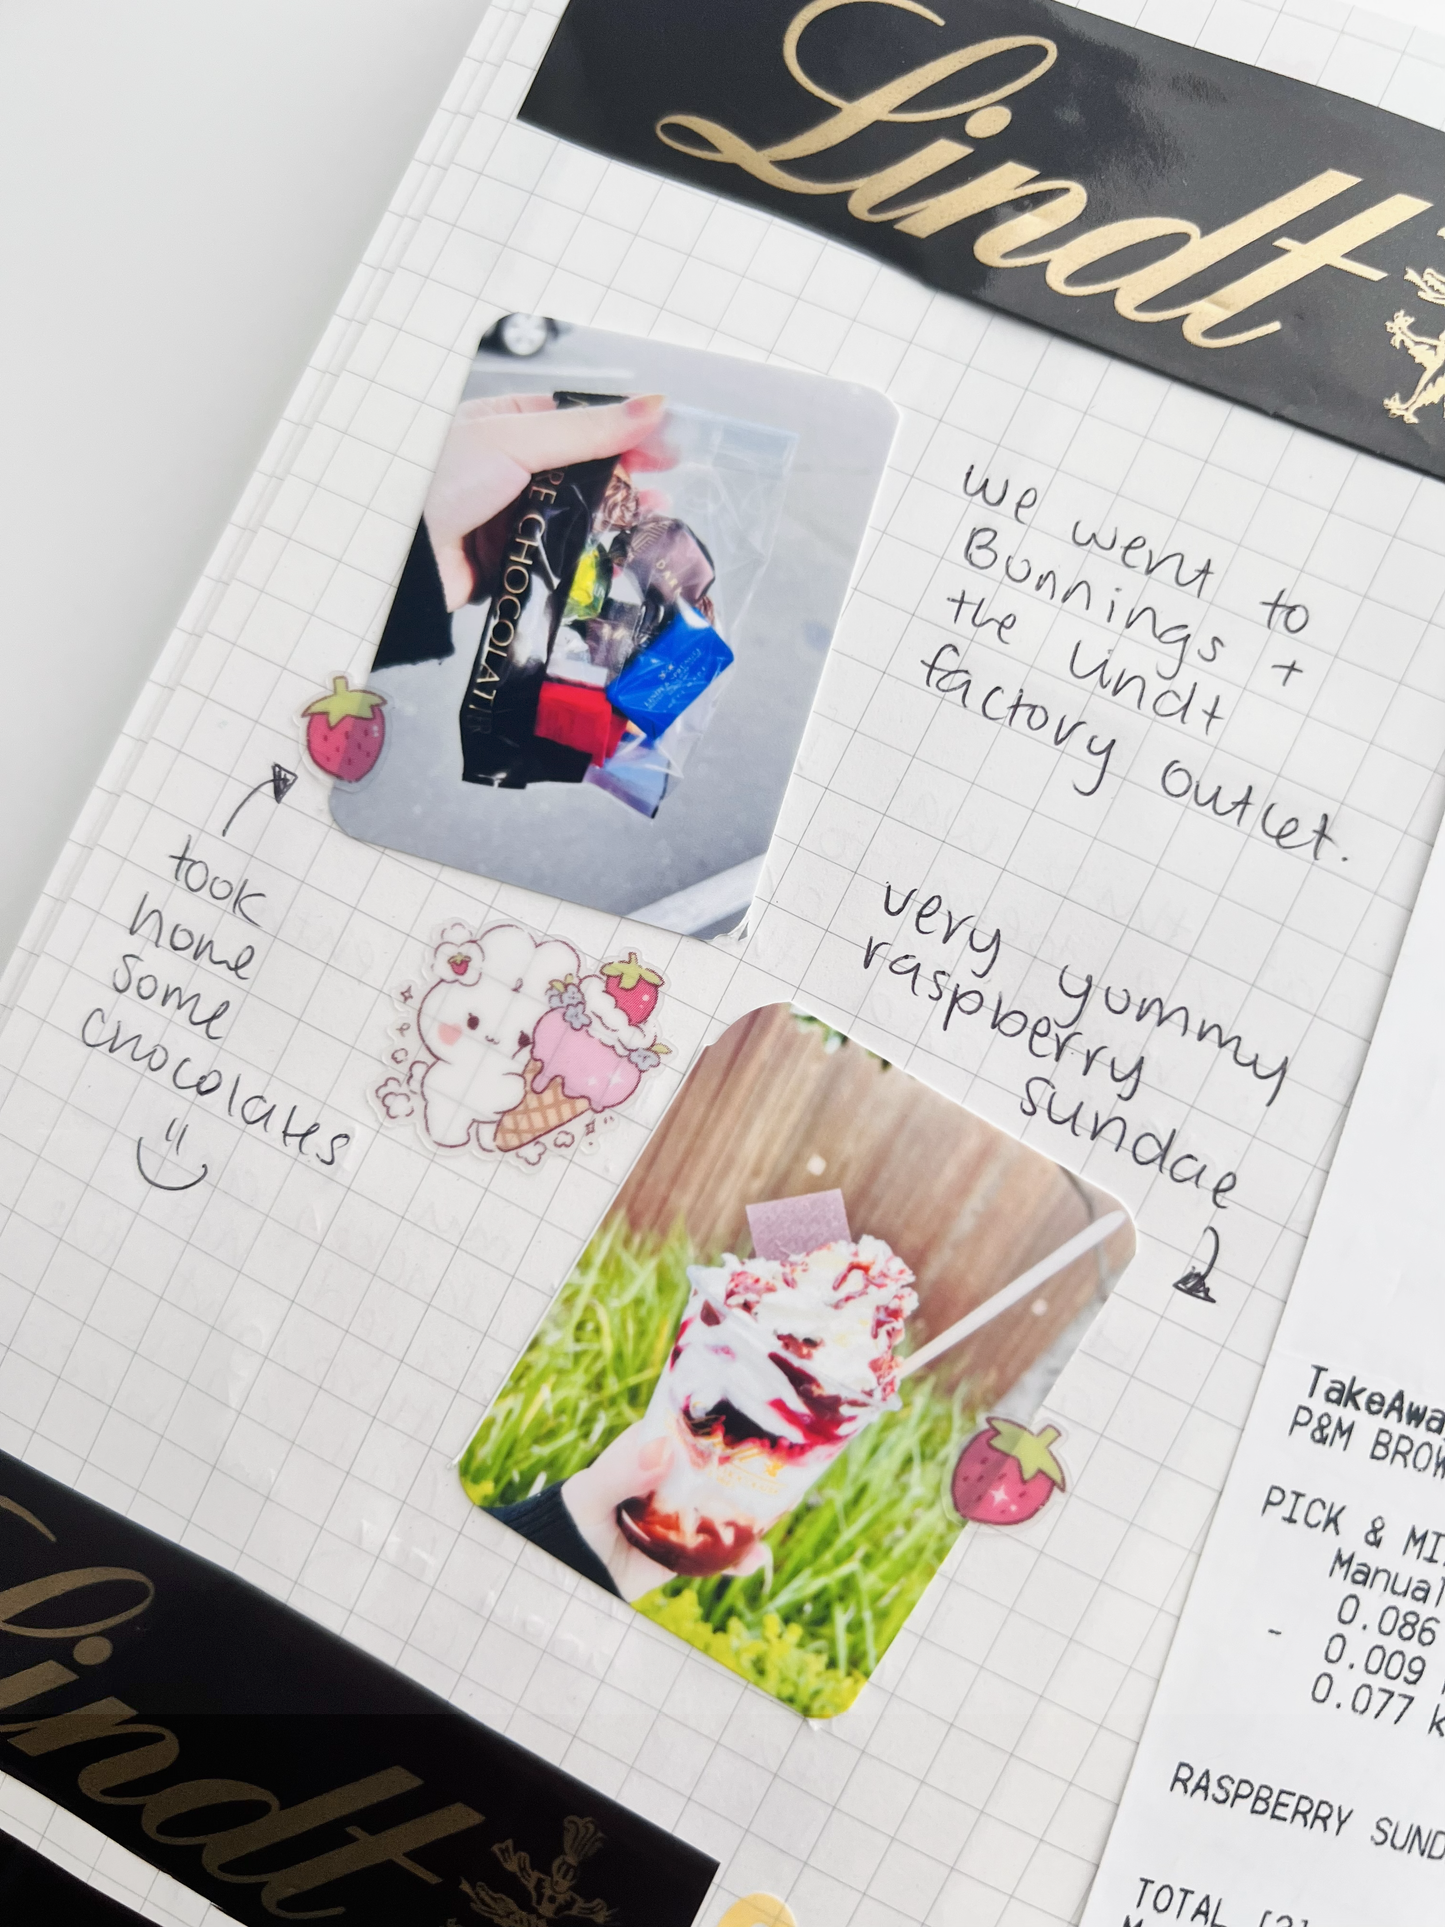 Lindt
RE CHOCOLATIER
DARK
we went to
Bunnings +
the Lindt
factory outlet.
took
home
some
chocolates
very yummy
raspberry
sundae
TakeAwa
P&M BROW
PICK & MI
Manual
0.086
- 0.009
0.077 k
RASPBERRY SUND
TOTAL [2]
Lindt